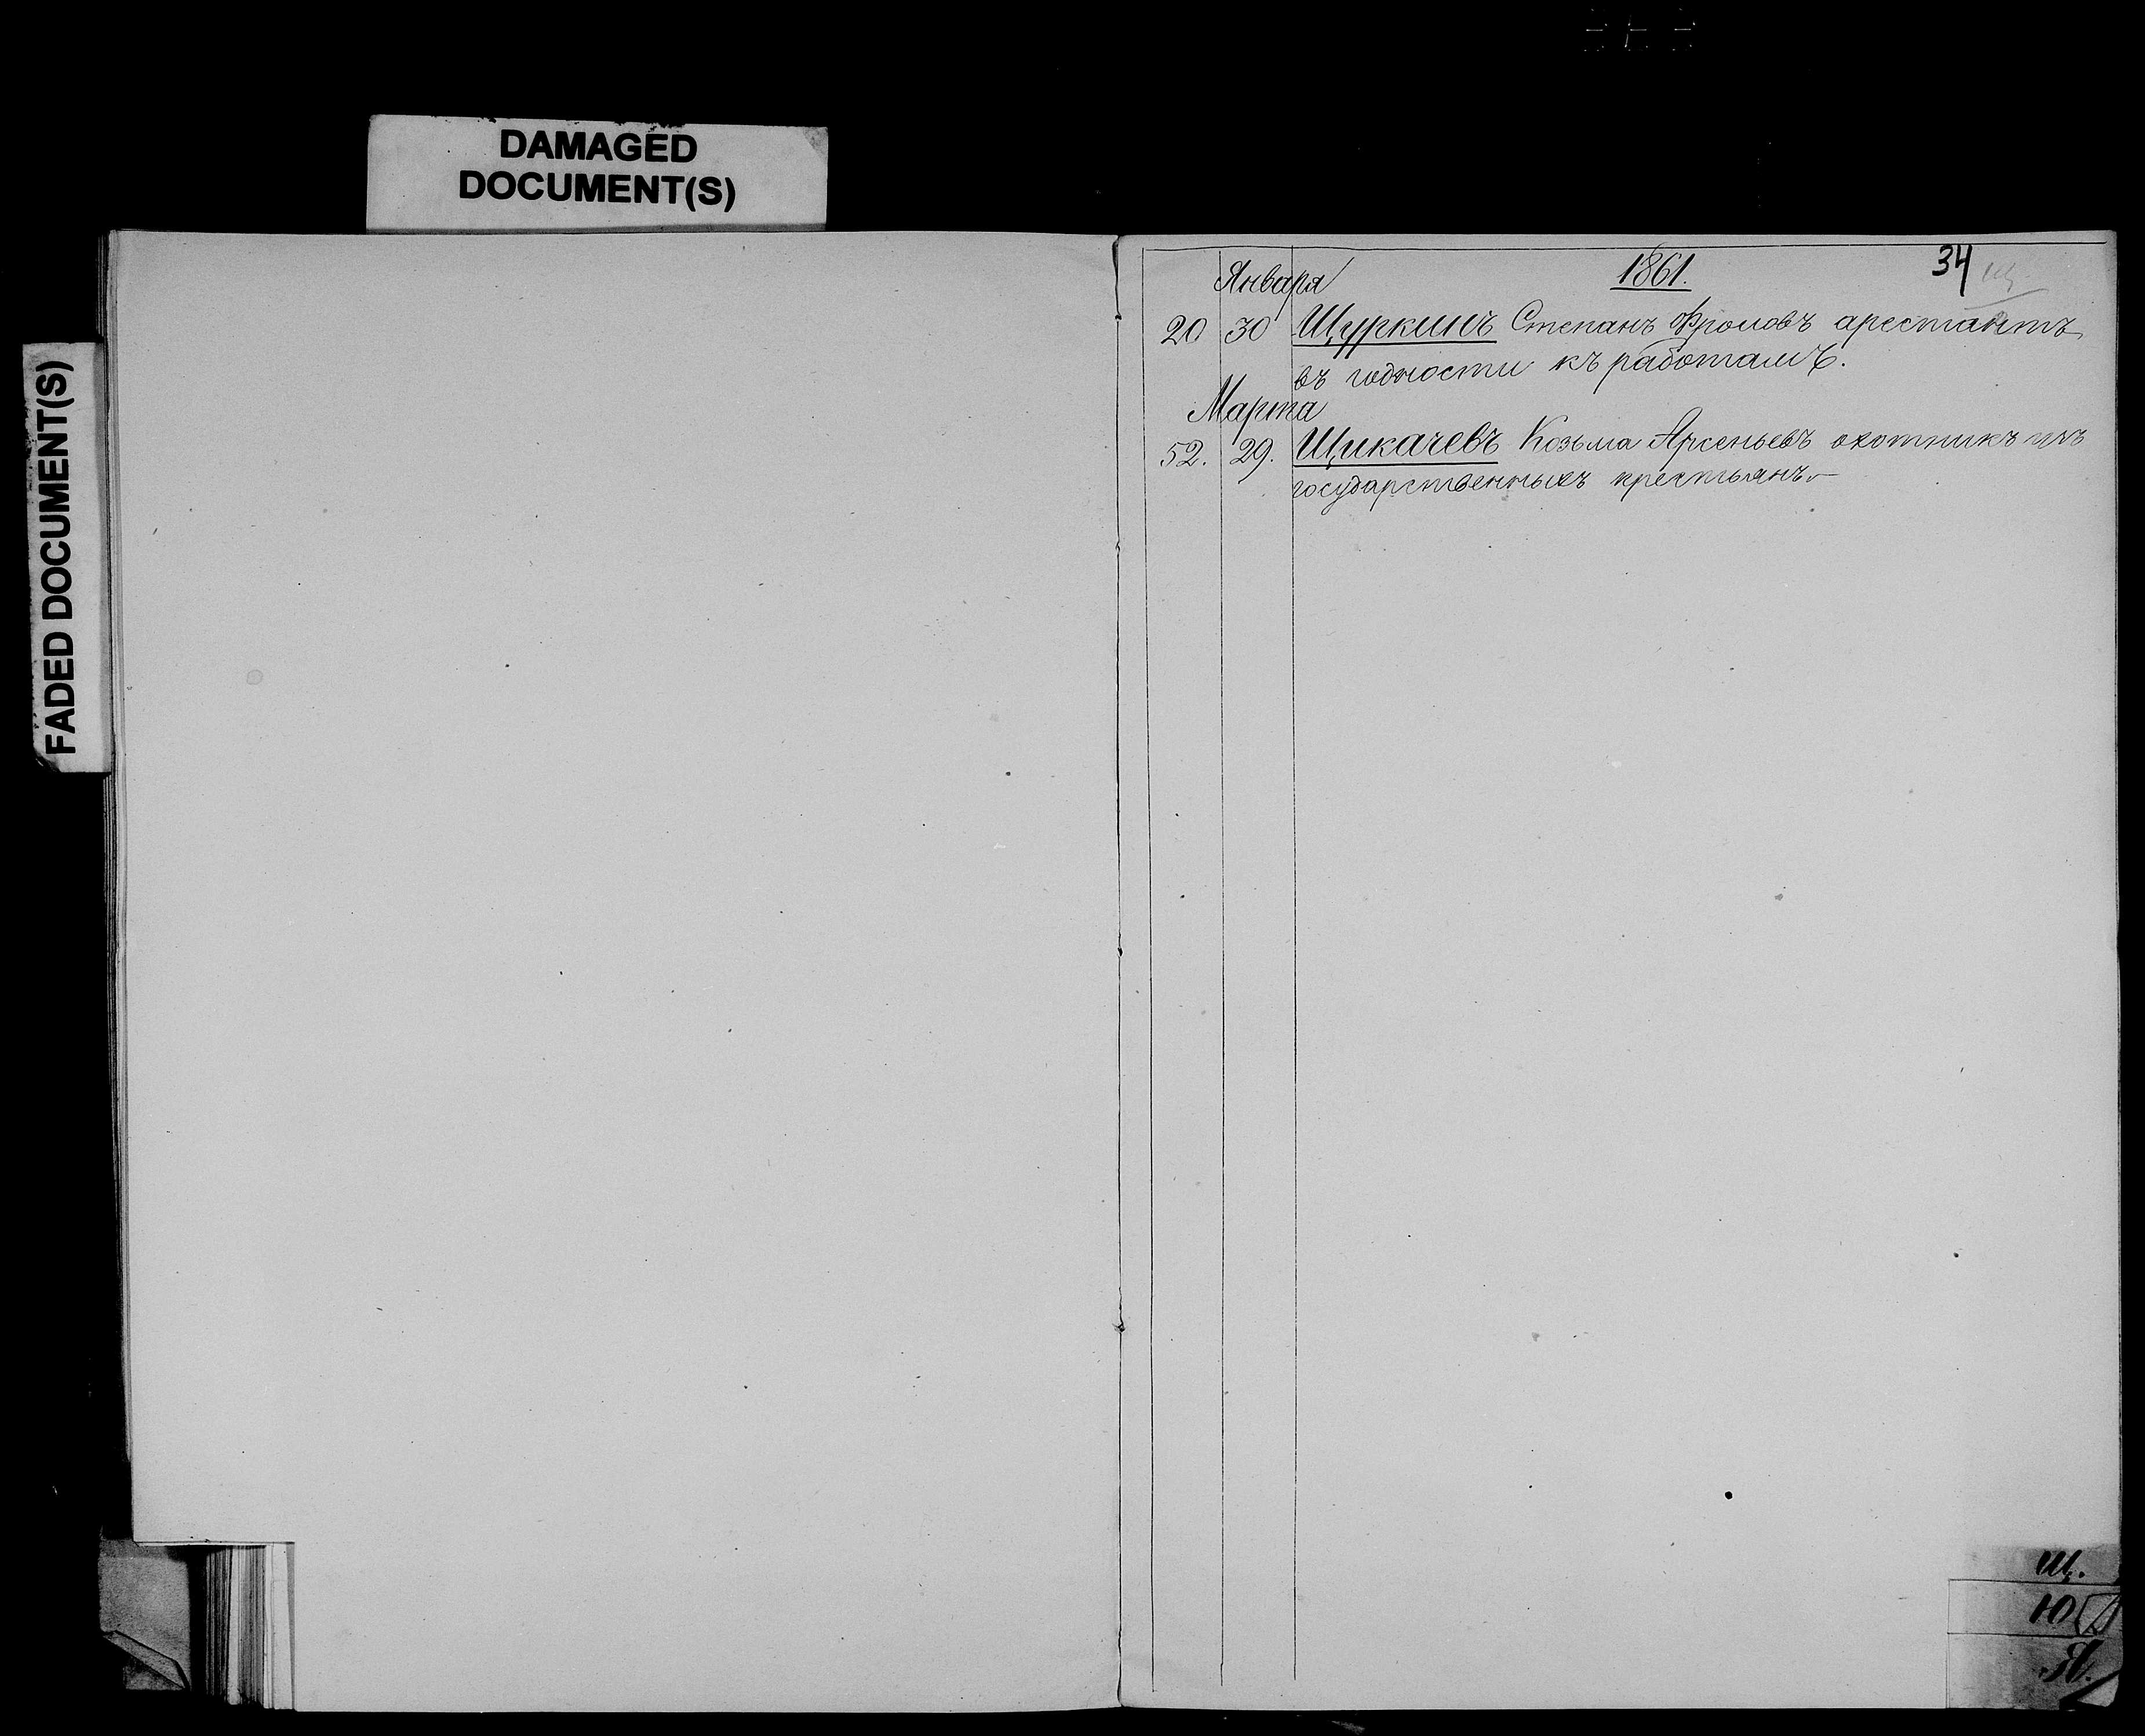 DAMAGED
DOCUMENT(S)
FADED DOCUMENT(S)
1861.
34 Щ
Января
20 30 Щуркинъ Степанъ Фроловъ арестантъ
въ годности къ работамъ.
Марта
52. 29. Щикачевъ Козьма Арсеньевъ охотникъ изъ
государственныхъ крестьянъ
Щ.
Ю
Я.